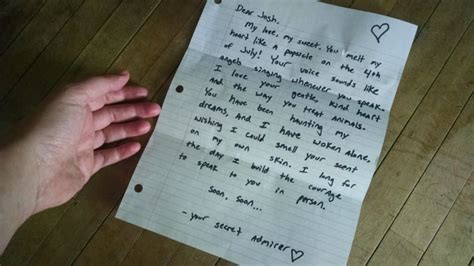 Dear Josh,
My love, my sweet. You melt my
heart like a popsicle on the 4th
of July! Your voice sounds like
angels singing whenever you speak.
I love your gentle, kind heart
and the way you treat animals.
You have been haunting my
dreams, and I have woken alone,
wishing I could smell your scent
on my own skin. I long for
the day I build the courage
to speak to you in person.
Soon, soon...
- your secret Admirer